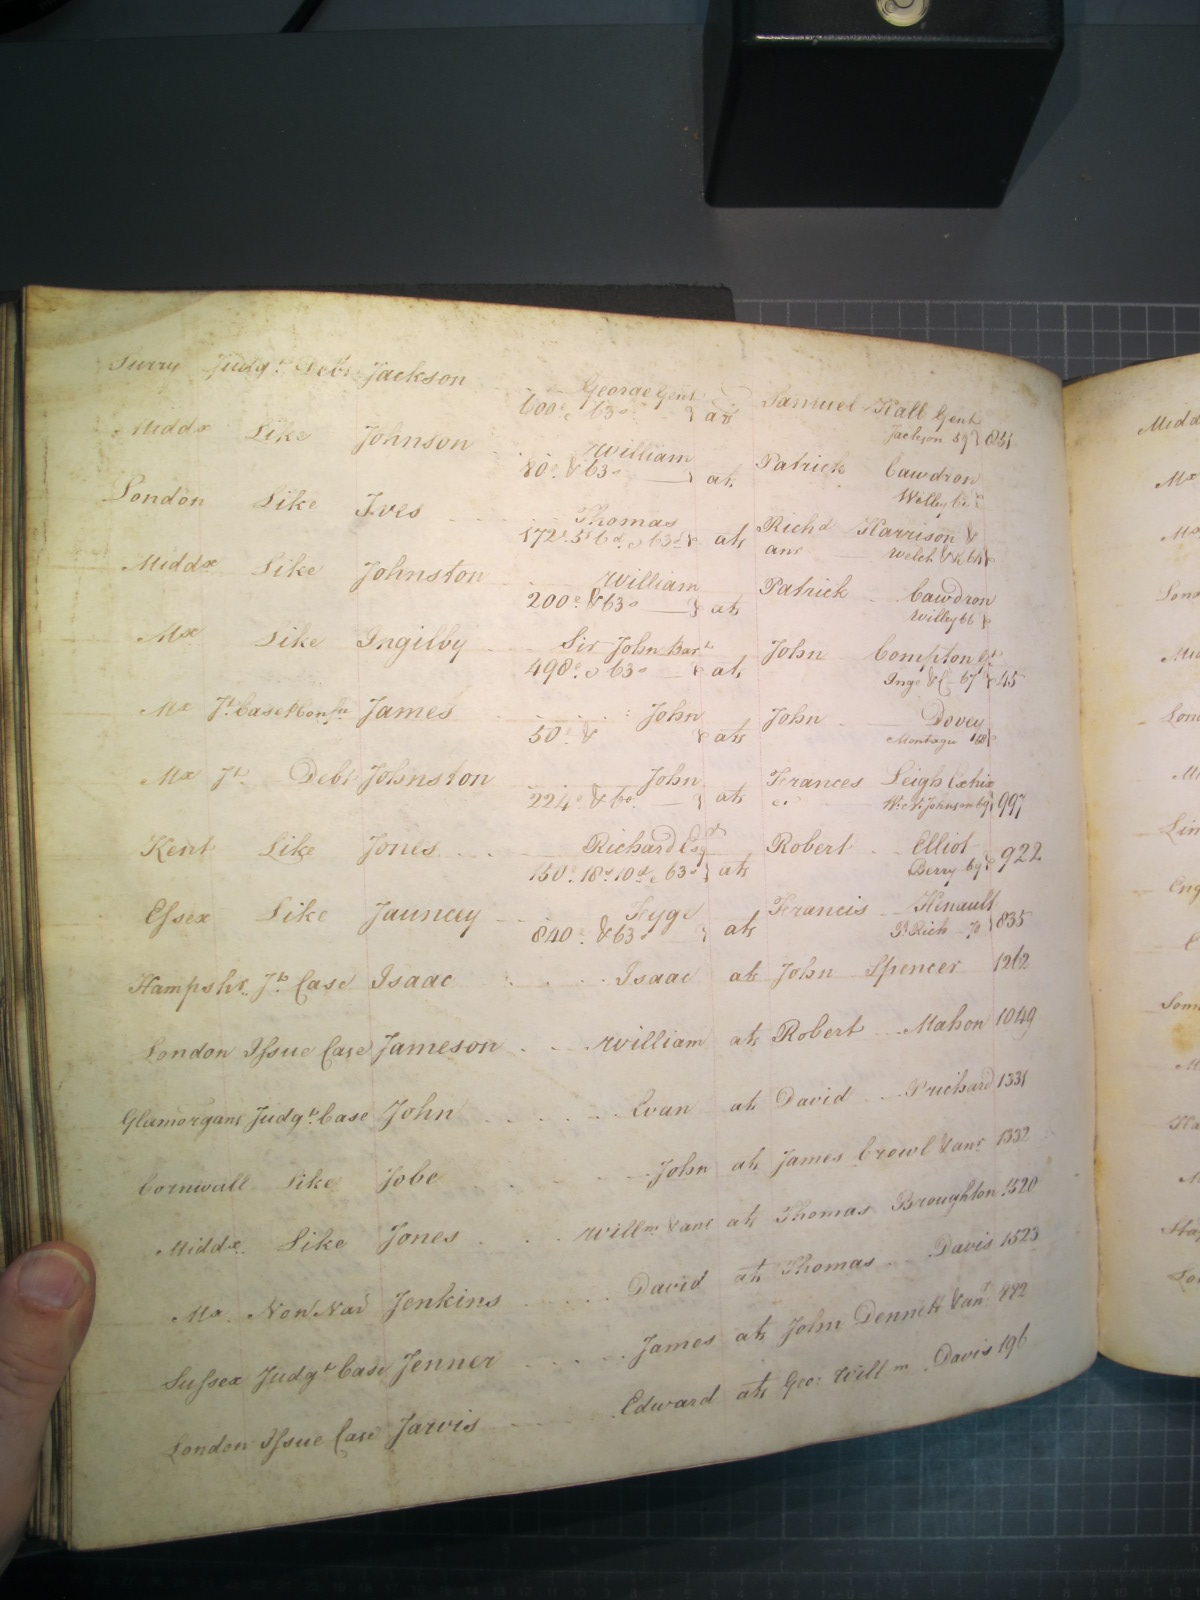 Surry Judgt. Debt Jackson George Gent
600£ & 63s } ats Samuel Hall Gent
Jackson 59 } 851
Middx Like Johnson William
80£ & 63s } ats Patrick Cawdron
Welley
London Like Ives Thomas
172£ 5s 6d & 63s } ats Richd Harrison &
anr Welch
Middx Like Johnston William
200£ & 63s } ats Patrick Cawdron
Willey 66
Mx Like Ingilby Sir John Bart
498£ & 63s } ats John Compton
Inge 67 45
Mx Jt. Case James John
50£ & } ats John Dovey
Montagu
Mx Jt. Debt Johnston John
224£ & 60s } ats Frances Leigh Exhix
Johnson 69 } 997
Kent Like Jones Richard Esqr
150£ 18s 10d & 63s } ats Robert Elliot
Berry 69 } 922
Essex Like Jauncey Fyge
840£ & 63s } ats Francis Hinault
Rich 70 } 835
Hampshr. Jt. Case Isaac Isaac ats John Spencer 1262
London Issue Case Jameson William ats Robert Mahon 1049
Glamorgans Judgt. Case John Evan ats David Prichard 1331
Cornwall Like Jobe John ats James Crowl & anr 1332
Middx. Like Jones Willm & anr ats Thomas Broughton 1520
Mx. Non Nad Jenkins David ats Thomas Davis 1523
Sussex Judgt Case Jenner James ats John Dennett & anr. 882
London Issue Case Jarvis Edward ats Geo: Willm. Davis 196
Middx
Mx